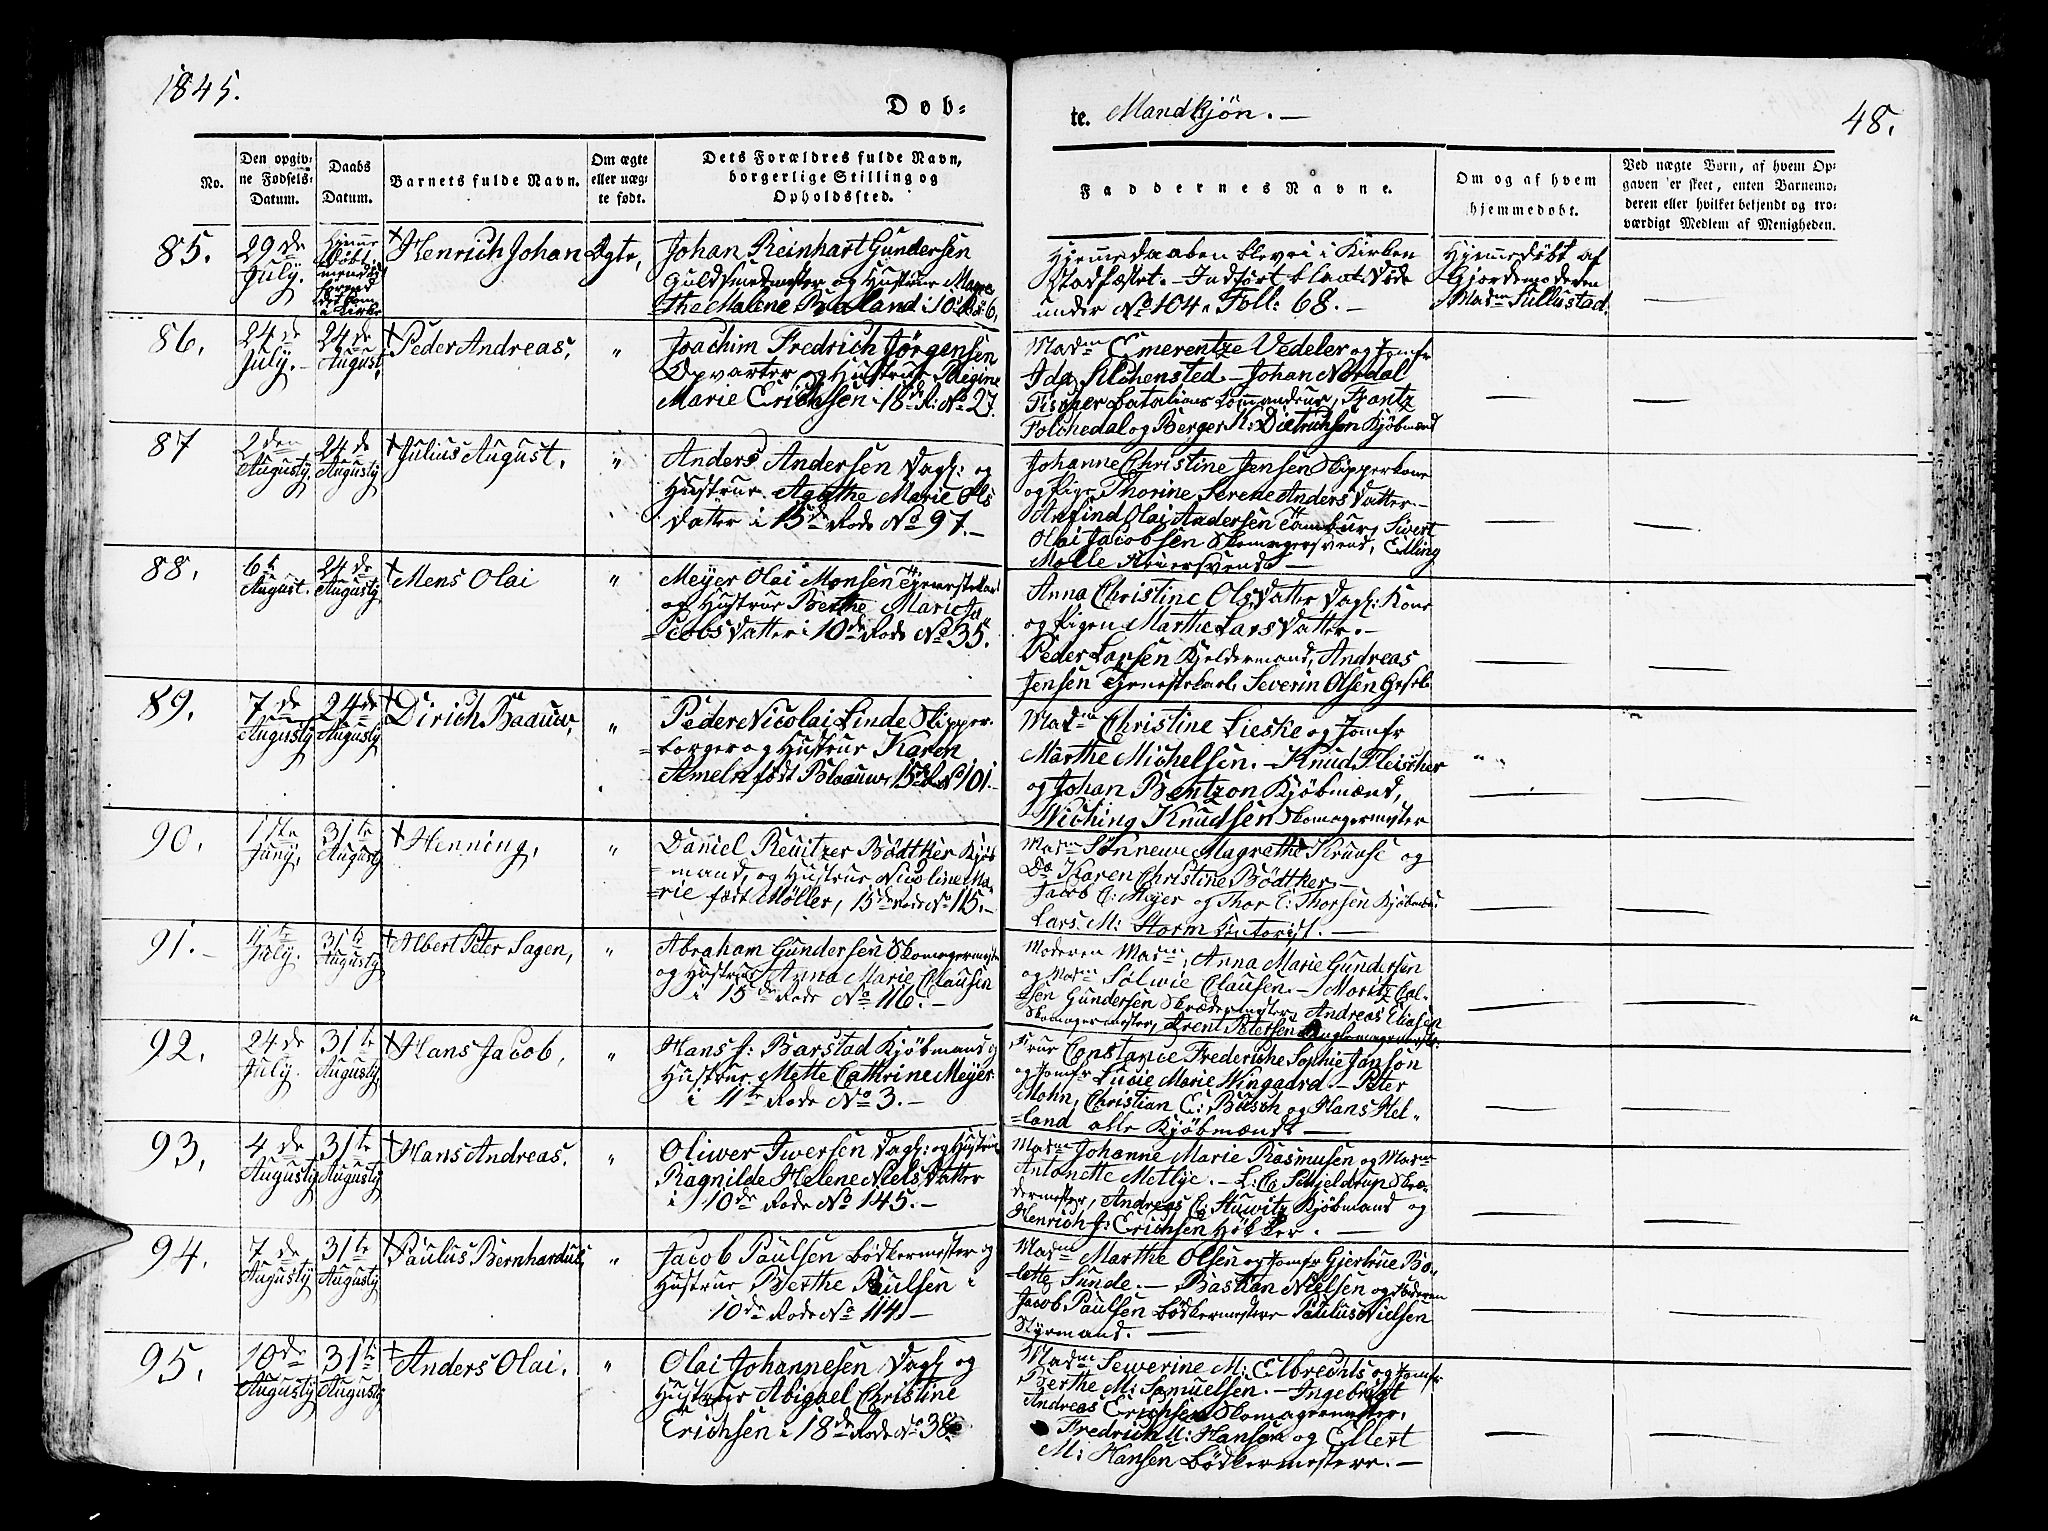 1845.
Døb-
te. Mandkjøn. —
48.
No.
Den opgiv-
ne Fødsels-
Datum.
Daabs
Datum.
Barnets fulde Navn.
Om ægte
eller uæg-
te født.
Dets Forældres fulde Navn,
borgerlige Stilling og
Opholdssted.
Faddernes Navne.
Om og af hvem
hjemmedøbt.
Ved uægte Børn, af hvem Op-
gaven er skeet, enten Barnemo-
deren eller hvilket betjendt og tro-
værdigt Medlem af Menigheden.
85.
29de
July.
Hjemme
døbt
+Henrich Johan
Ægte,
Johan Reinhart Gundersen
Guldsmedmester og Hustrue Magre
the Malene Børland i 10de R: 6,
Hjemmedaaben blev ei i Kirken
Stadfæstet. — Indført blant Døde
under No 104, Foll: 68. —
Hjemmedøbt af
Gjordemoderen
Madm Sullustad.
86.
24de
July. —
24de
August,
+Peder Andreas,
"
Joachim Fredrich Jørgensen
Opvarter og Hustrue Regine
Marie Erichsen i 18de R: No 27.
Madm Emerentze Vedeler og Jomfr
Ida Silchensted. — Johan Nordal
Fischer Batalions Commandeur, Frantz
Folchedal og Berger K: Dietrichsen Kjøbmænd
87
2den
Augusty.
24de
Augusty
+Julius August,
"
Anders Andersen Dagl: og
Hustrue Agathe Marie Ols
datter i 15de Rode No 97. —
Johanne Christine Jensen Skipperkone
og Pige Thorine Serene Andersdatter. —
Arfind Olai Andersen Tambur, Sivert
Olai Jacobsen Skomagersvend, Edling
Molle
88.
6te
August.
24de
Augusty
+Mens Olai
"
Meyer Olai Monsen Tjenestekarl
og Hustrue Berthe Marie Ja
-cobsdatter i 10de Rode No 35.
Anna Christine Olsdatter Dagl: Kone
og Pigen Marthe Larsdatter. —
Peder Larsen Kjeldermand, Andreas
Jensen Tjenestekarl, Severin Olsen Geselr
89.
7de
Augusty
24de
Augusty
+Dirich Baauw,
"
Peder Nicolai Linde Skipper-
borger og Hustrue Karen
Ameln født Blaauw, 15de R No 101. —
Madm Christine Lieske og Jomfr
Marthe Michelsen. — Knud Fleischer
og Johan Bentzon Kjøbmænd,
Wiching Knudsen Skomagermester
90.
1ste
Juny,
31te
Augusty
+Henning,
"
Daniel Reuitzer Bødtker Kjøb
-mand, og Hustrue Nicoline Ma-
-rie født Møller, 15de Rode No 115. —
Madm Sønnewe Magrethe Kruuse og
Do Karen Christine Bødtker —
Jacob C: Meyer og Thor C: Thorsen Kjøbmænd
Lars M: Storm Contorist. —
91. —
11te
July.
31te
Augusty
+Albert Peter Sagen,
"
Abraham Gundersen Skomagermester
og Hustrue Anna Marie Clausen
i 15de Rode No 116. —
Moderen Madm, Anna Marie Gundersen
og Madm Sølwie Clausen. — Moritz Cal-
-sen Gundersen Skrædermester, Andreas Eliasen
Skomagermester, Brent Petersen
92.
24de
July.
31te
Augusty,
+Hans Jacob,
"
Hans J: Barstad Kjøbmand og
Hustrue Mette Cathrine Meyer
i 11te Rode No 3. —
Frue Constance Frederiche Sophie Janson
og Jomfr Lucie Marie Wingaard. — Peter
Mohn, Christian C: Büsch og Hans Hel-
-land alle Kjøbmænd —
93.
4de
Augusty
31te
Augusty
+Hans Andreas.
"
Oliwer Iwersen Dagl: og Hustrue
Ragnilde Helene Nielsdatter
i 10de Rode No 145. —
Madm Johanne Marie Rasmusen og Madm
Antonette Metlye. — L: C: Schjeldrup Skræ-
dermester, Andreas C: Stuwitz Kjøbmand og
Henrich J: Erichsen Høker. —
94.
7de
Augusty
31te
Augusty
+Paulus Bernhardus
"
Jacob Paulsen Bødkermester og
Hustrue Berthe Paulsen i
10de Rode No 114 —
Madm Marthe Olsen og Jomfr Gjertrue Bo-
-lette Sunde. — Bastian Nielsen og Faderen
Jacob Paulsen Bødkermestere Paulus Nielsen
Styrmand. —
95.
10de
Augusty
31te
Augusty
+Anders Olai.
"
Olai Johannesen Dagl og
Hustrue Abigael Christine
Erichsen i 18de Rode No 38.
Madm Sewerine M: Elbrechts og Jomfr
Berthe M: Samuelsen. — Ingebrigt
Andreas Erichsen Skomagermester,
Fredrich M: Hansen og Ellert
M: Hansen Bødkermestere. —